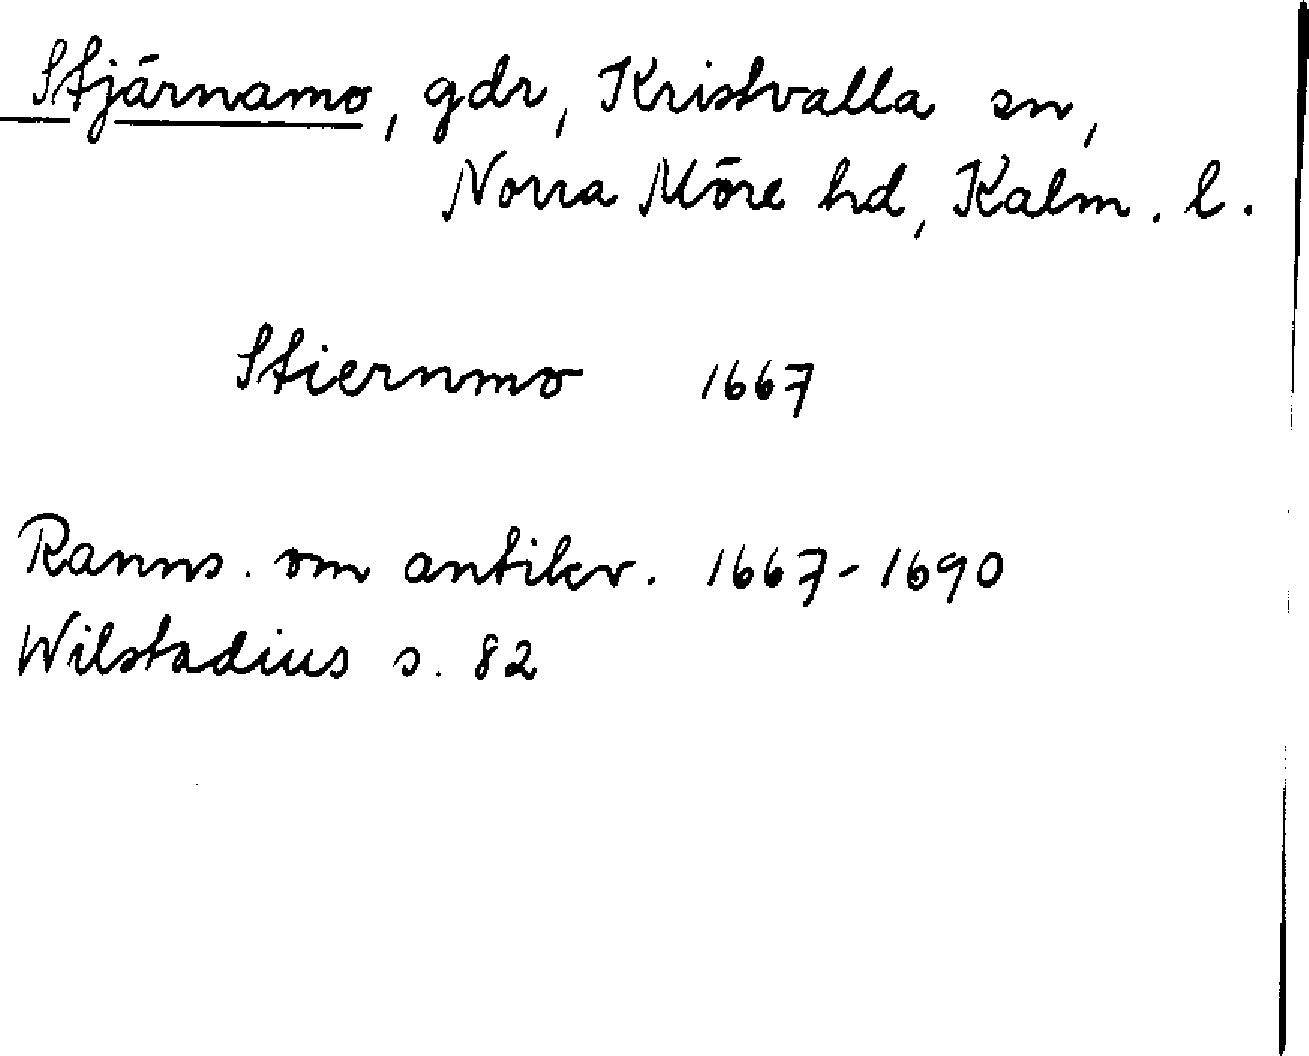 Stjärnamo, gdr, Kristvalla sn,
Norra Möre hd, Kalm. l.
Stiernmo 1667
Ranns. om antikv. 1667-1690
Wilstadius s. 82